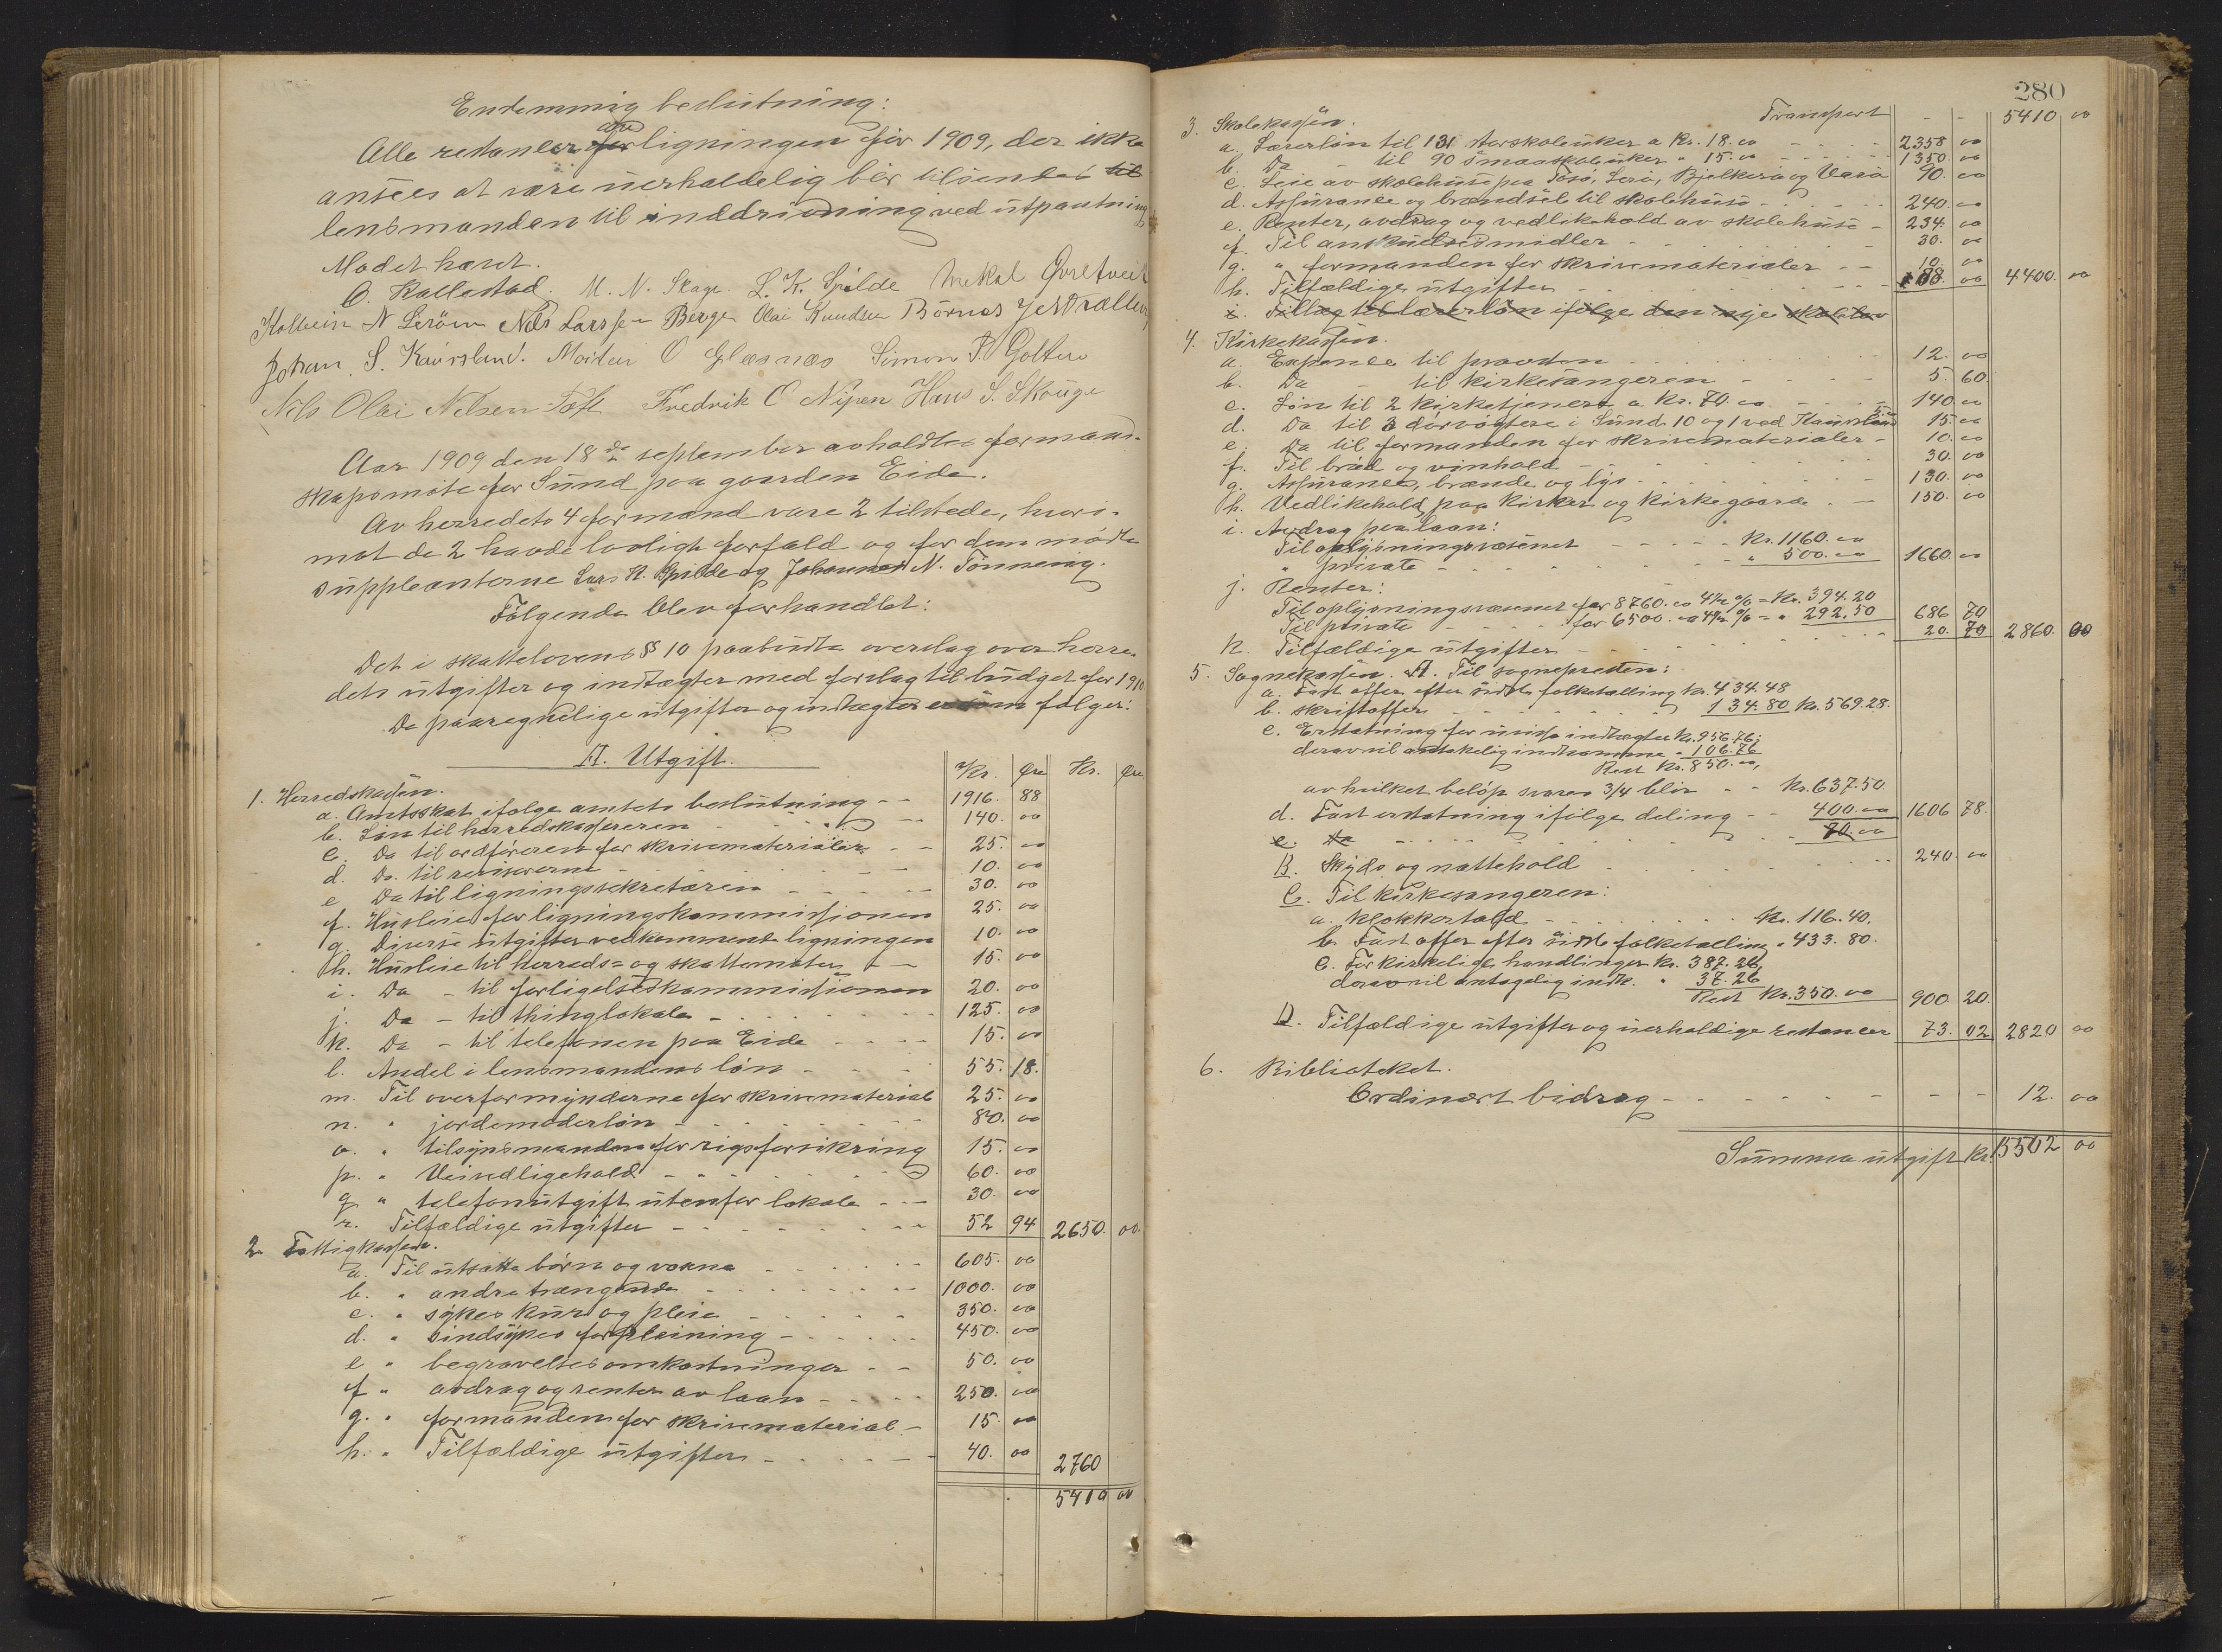 Enstemmig beslutning:
Alle restancer av ligningen for 1909, der ikke
ansees at være uerholdelig blir tilsendes til
lensmanden til inddrivning ved utpantning
Mødet hævet.
O. Kallestad. M. N. Skage. L. K. Spilde Mekal Øvretveit
Kolbein N Lerøen Nils Larssen Berge Olai Knudsen Börnes
Johan. S. Kaúrslund. Morten O Glæsnæs Simon P. Golten
Nils Olai Nilsen Toft Fredrik O Nipen Hans S. Skoúge
Aar 1909 den 18de september avholdtes formand-
skapsmöte for Sund paa gaarden Eide.
Av herredets 4 formænd vare 2 tilstede, hvori-
mot de 2 havde lovligt forfald og for dem mödte
suppleanterne Lars K. Spilde og Johannes N. Tönneseig.
Fölgende blev forhandlet:
Det i skattelovens § 10 paabudte overslag over herre-
dets utgifter og indtægter med forslag til budget for 1910
De paaregnelige utgifter og indtægter er som fölger:
A. Utgift.
Kr. Øre Kr. Øre
1. Herredskassen.
a. Amtsskat ifölge amtets beslutning - - 1916. 88
b. Lön til herredskassereren - - 140. 00
c. Do til ordföreren for skrivematerialer - - 25. 00
d. Do. til revisorerne - - 10. 00
e Do til ligningssekretæren - - 30. 00
f. Husleie for ligningskommissionen 25. 00
g. Diverse utgifter vedkommende ligningen 10. 00
h. Husleie til herreds- og skattemöter - - 15. 00
i. Do - til forligelseskommissionen 20. 00
j. Do - til thinglokale - - 125. 00
k. Do - til telefonen paa Eide - - 15. 00
l. Andel i lensmandens lön - - 55. 18.
m. Til overformynderne for skrivemateriel 25. 00
n. " jordemoderlön - - 80. 00
o. " tilsynsmanden for rigsforsikring 15. 00
p. " Veivedligehold - - 60. 00
q " telefonutgift utenfor lokale - - 30. 00
r. Tilfældige utgifter - - 52 94 2650. 00.
2. Fattigkassen.
a. Til utsatte börn og voxne - - 605. 00
b. " andre trængende - - 1000. 00
c. " sykes kur og pleie - - 350. 00
d. " sindsykes forpleining - - 450. 00
e " begravelsesomkostninger - - 50. 00
f " avdrag og renter av laan - - 250. 00
g. " formanden for skrivemateriel - 15. 00
h. " Tilfældige utgifter - - 40. 00 2760
5410 00
280
Transport - - 5410 00
3. Skolekassen.
a. Lærerlön til 131 storskoleuker a Kr. 18.00 - - 2358 00
b. Do - til 90 smaaskoleuker " 15.00 - - 1350. 00
c. Leie av skolehuse paa Tösö, Lerö, Bjelkerö og Varö 90. 00
d. Assurance og brændsel til skolehuse - - 240. 00
e. Renter, avdrag og vedlikehold av skolehuse - 234. 00
f. Til anskuelsesmidler - - 30. 00
g. " formanden for skrivematerialer - - 10. 00
h. Tilfældige utgifter - - 88. 00 4400. 00
i. Tillæg til lærerlön ifölge den nye skolelov
4. Kirkekassen.
a. Expence til provden - - 12. 00
b. Do - til kirkesangeren - - 5. 60
c. Lön til 2 kirketjenere a Kr. 70.00 - - 140. 00
d. Do til 3 dörvogtere i Sund 10 og 1 ved Kaursland 15. 00
e. Do til formanden for skrivematerialer - 10. 00
f. Til bröd og vinhold - - 30. 00
g. Assurance, brænde og lys - - 130. 00
h. Vedlikehold paa kirker og kirkegaarde. - 150. 00
i. Avdrag paa laan:
Til oplysningsvæsenet - - Kr. 1160.00
" private - - " 500.00 1660. 00
j. Renter:
Til oplysningsvæsenet for 8760.00 4½ % = Kr. 394.20
Til private - - for 6500.00 4½ % = " 292.50 686 70
k. Tilfældige utgifter - - 20. 70 2860. 00
5. Sognekassen. A. Til sognepresten:
a. Fast offer efter sidste folketælling Kr. 434.48
b. skriftoffer - - 134.80 Kr. 569.28.
c. Erstatning for uvisse indtægter Kr. 956.76;
derav vil antakelig indkomme - 106.76
Rest Kr. 850.00,
av hvilket belöp svares 3/4 blir - - Kr. 637.50.
d. Fast erstatning ifölge deling - - 400.00 1606 78.
e. Do - - 70.00
B. Skyds og nattehold - - 240. 00
C. Til kirkesangeren:
a. Klokkertold - - Kr. 116.40.
b. Fast offer efter sidste folketælling " 433.80.
c. For kirkelige handlinger Kr. 387.26,
derav vil antagelig indk. " 37.26
Rest Kr. 350.00 900 20.
D. Tilfældige utgifter og uerholdige restancer 73. 02 2820 00
6. Biblioteket.
Ordinært bidrag - - 12. 00
Summa utgift Kr. 15502 00